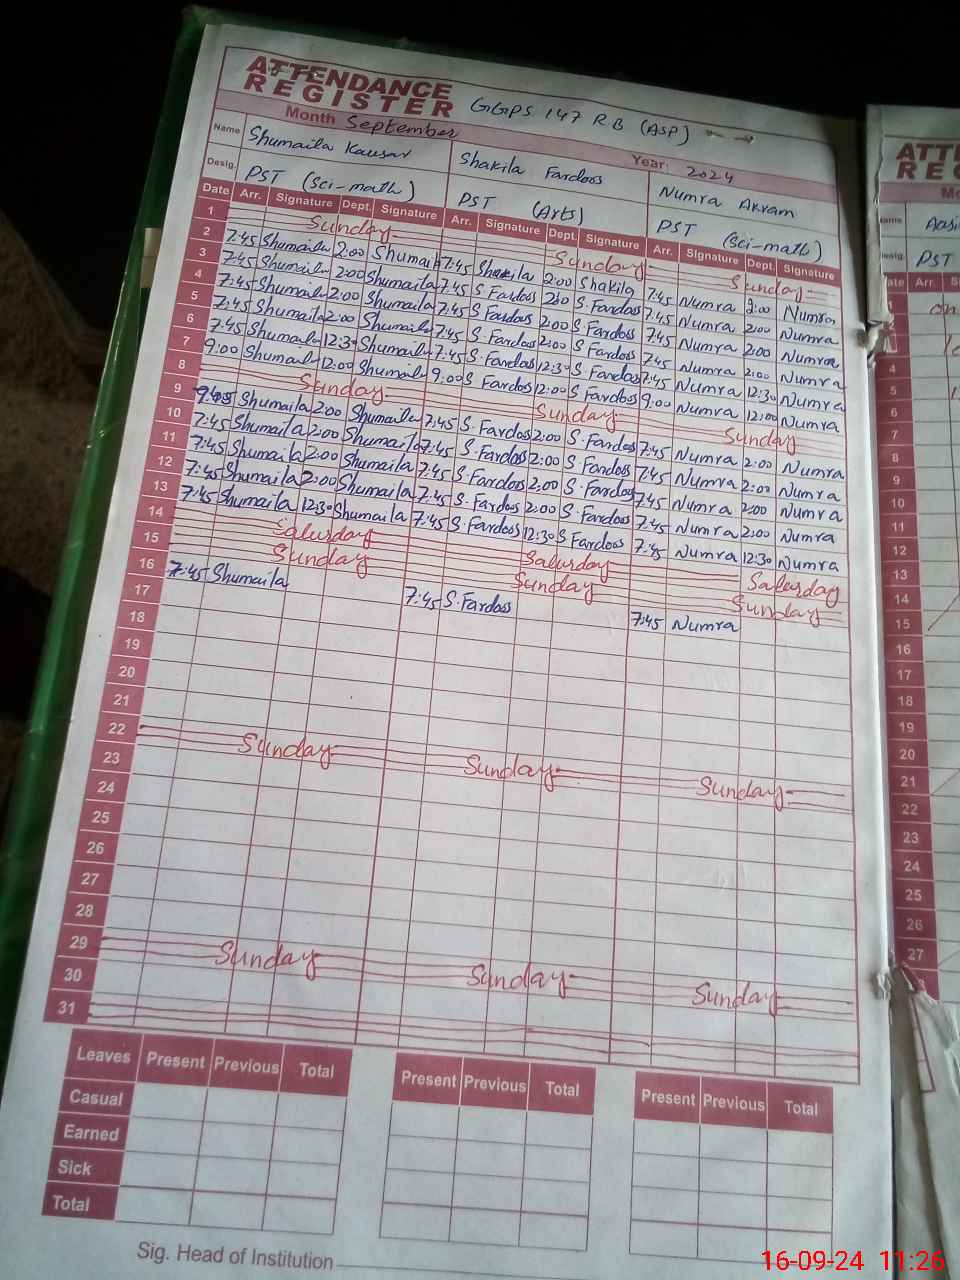 ATTENDANCE
REGISTER GGPS 147 R.B (ASP)
Month September Year: 2024
Name Shumaila Kausar Shakila Fardoos Numra Akram
Desig. PST (Sci-math) PST (Arts) PST (Sci-math)
Date Arr. Signature Dept. Signature Arr. Signature Dept. Signature Arr. Signature Dept. Signature
1 Sunday Sunday Sunday
2 7:45 Shumaila 2:00 Shumaila 7:45 Shakila 2:00 Shakila 7:45 Numra 2:00 Numra
3 7:45 Shumaila 2:00 Shumaila 7:45 S Fardos 2:00 S. Fardoos 7:45 Numra 2:00 Numra
4 7:45 Shumaila 2:00 Shumaila 7:45 S Fardos 2:00 S. Fardoos 7:45 Numra 2:00 Numra
5 7:45 Shumaila 2:00 Shumaila 7:45 S. Fardos 2:00 S. Fardoos 7:45 Numra 2:00 Numra
6 7:45 Shumaila 12:30 Shumaila 7:45 S. Fardos 12:30 S. Fardoos 7:45 Numra 12:30 Numra
7 9:00 Shumaila 12:00 Shumaila 9:00 S Fardos 12:00 S Fardoos 9:00 Numra 12:00 Numra
8 Sunday Sunday Sunday
9 Shumaila 2:00 Shumaila 7:45 S. Fardos 2:00 S. Fardoos 7:45 Numra 2:00 Numra
10 7:45 Shumaila 2:00 Shumaila 7:45 S. Fardos 2:00 S. Fardoos 7:45 Numra 2:00 Numra
11 7:45 Shumaila 2:00 Shumaila 7:45 S. Fardos 2:00 S. Fardoos 7:45 Numra 2:00 Numra
12 7:45 Shumaila 2:00 Shumaila 7:45 S. Fardos 2:00 S. Fardoos 7:45 Numra 2:00 Numra
13 7:45 Shumaila 12:30 Shumaila 7:45 S. Fardos 12:30 S Fardoos 7:45 Numra 12:30 Numra
14 Saturday Saturday Saturday
15 Sunday Sunday Sunday
16 7:45 Shumaila 7:45 S. Fardos 7:45 Numra
17
18
19
20
21
22 Sunday Sunday Sunday
23
24
25
26
27
28
29 Sunday Sunday Sunday
30
31
Leaves Present Previous Total Present Previous Total Present Previous Total
Casual
Earned
Sick
Total
Sig. Head of Institution
ATT
RE
Desig. PST
Arr.
4
5
6
7
8
9
10
11
12
13
14
15
16
17
18
19
20
21
22
23
24
25
26
27
16-09-24 11:26